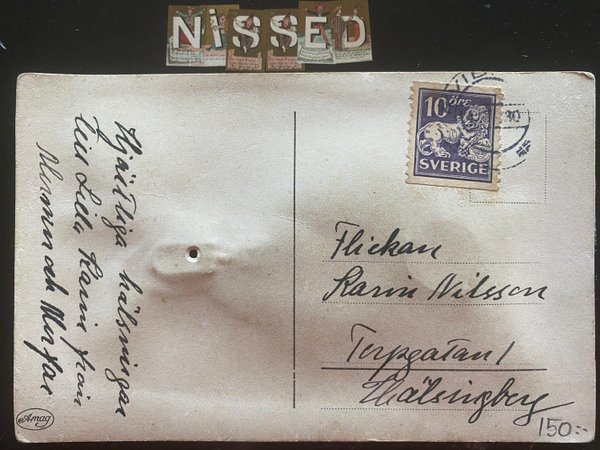 NiSSED
10 öre
SVERIGE
30
Hjärtliga hälsningar
till Lilla Karin från
Mormor och Morfar
Flickan
Karin Nilsson
Torpgatan 1
Hälsingberg
Amag
150:-